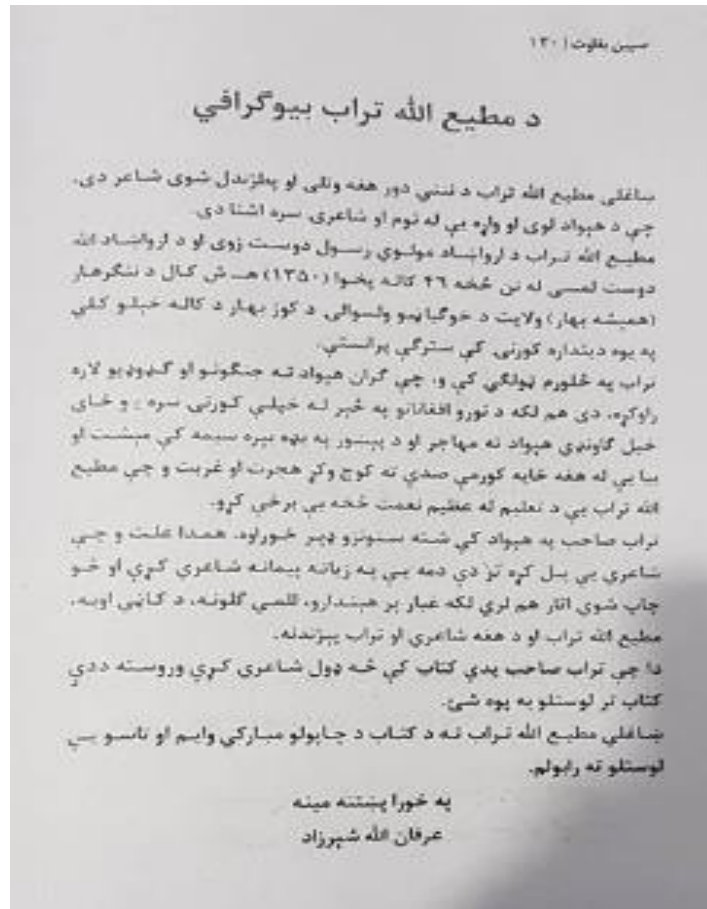 سپين بغاوت | ١٣٠
د مطيع الله تراب بيوګرافي
ښاغلی مطيع الله تراب د ننني دور هغه وتلی او پېژندل شوی شاعر دی،
چې د هېواد لوی او واړه يې له نوم او شاعرۍ سره اشنا دي.
مطيع الله تراب د ارواښاد مولوي رسول دوست زوی او د ارواښاد الله
دوست لمسی له نن څخه ٤٦ کاله پخوا (١٣٥٠) هـ ش کال د ننګرهار
(هميشه بهار) ولايت د خوګياڼيو ولسوالۍ د کوز بهار د کاله خېلو کلي
په يوه دينداره کورنۍ کې سترګې پرانستې.
تراب په څلورم ټولګي کې و، چې ګران هېواد ته جنګونو او ګډوډيو لاره
راوکړه، دی هم لکه د نورو افغانانو په څېر له خپلې کورنۍ سره
خپل ګاونډي هېواد ته مهاجر او د پېښور په بډه بېره سيمه کې مېشت او
بيا يې له هغه ځايه کورمې صدې ته کوچ وکړ هجرت او غربت و چې مطيع
الله تراب يې د تعليم له عظيم نعمت څخه بې برخې کړو.
تراب صاحب په هېواد کې شته ستونزو ډېر ځوراوه، همدا علت و چې
شاعرۍ يې بل کړه تر دې دمه يې په زياته پيمانه شاعري کړې او څو
چاپ شوي اثار هم لري لکه غبار پر هېندارو، للمي ګلونه، د کاڼي اوبه،
مطيع الله تراب او د هغه شاعري او تراب پېژندنه.
دا چې تراب صاحب پدې کتاب کې څه ډول شاعري کړې وروسته ددې
کتاب تر لوستلو به پوه شئ.
ښاغلي مطيع الله تراب ته د کتاب د چاپولو مبارکي وايم او تاسو يې
لوستلو ته رابولم.
په خورا پښتنه مينه
عرفان الله شېرزاد